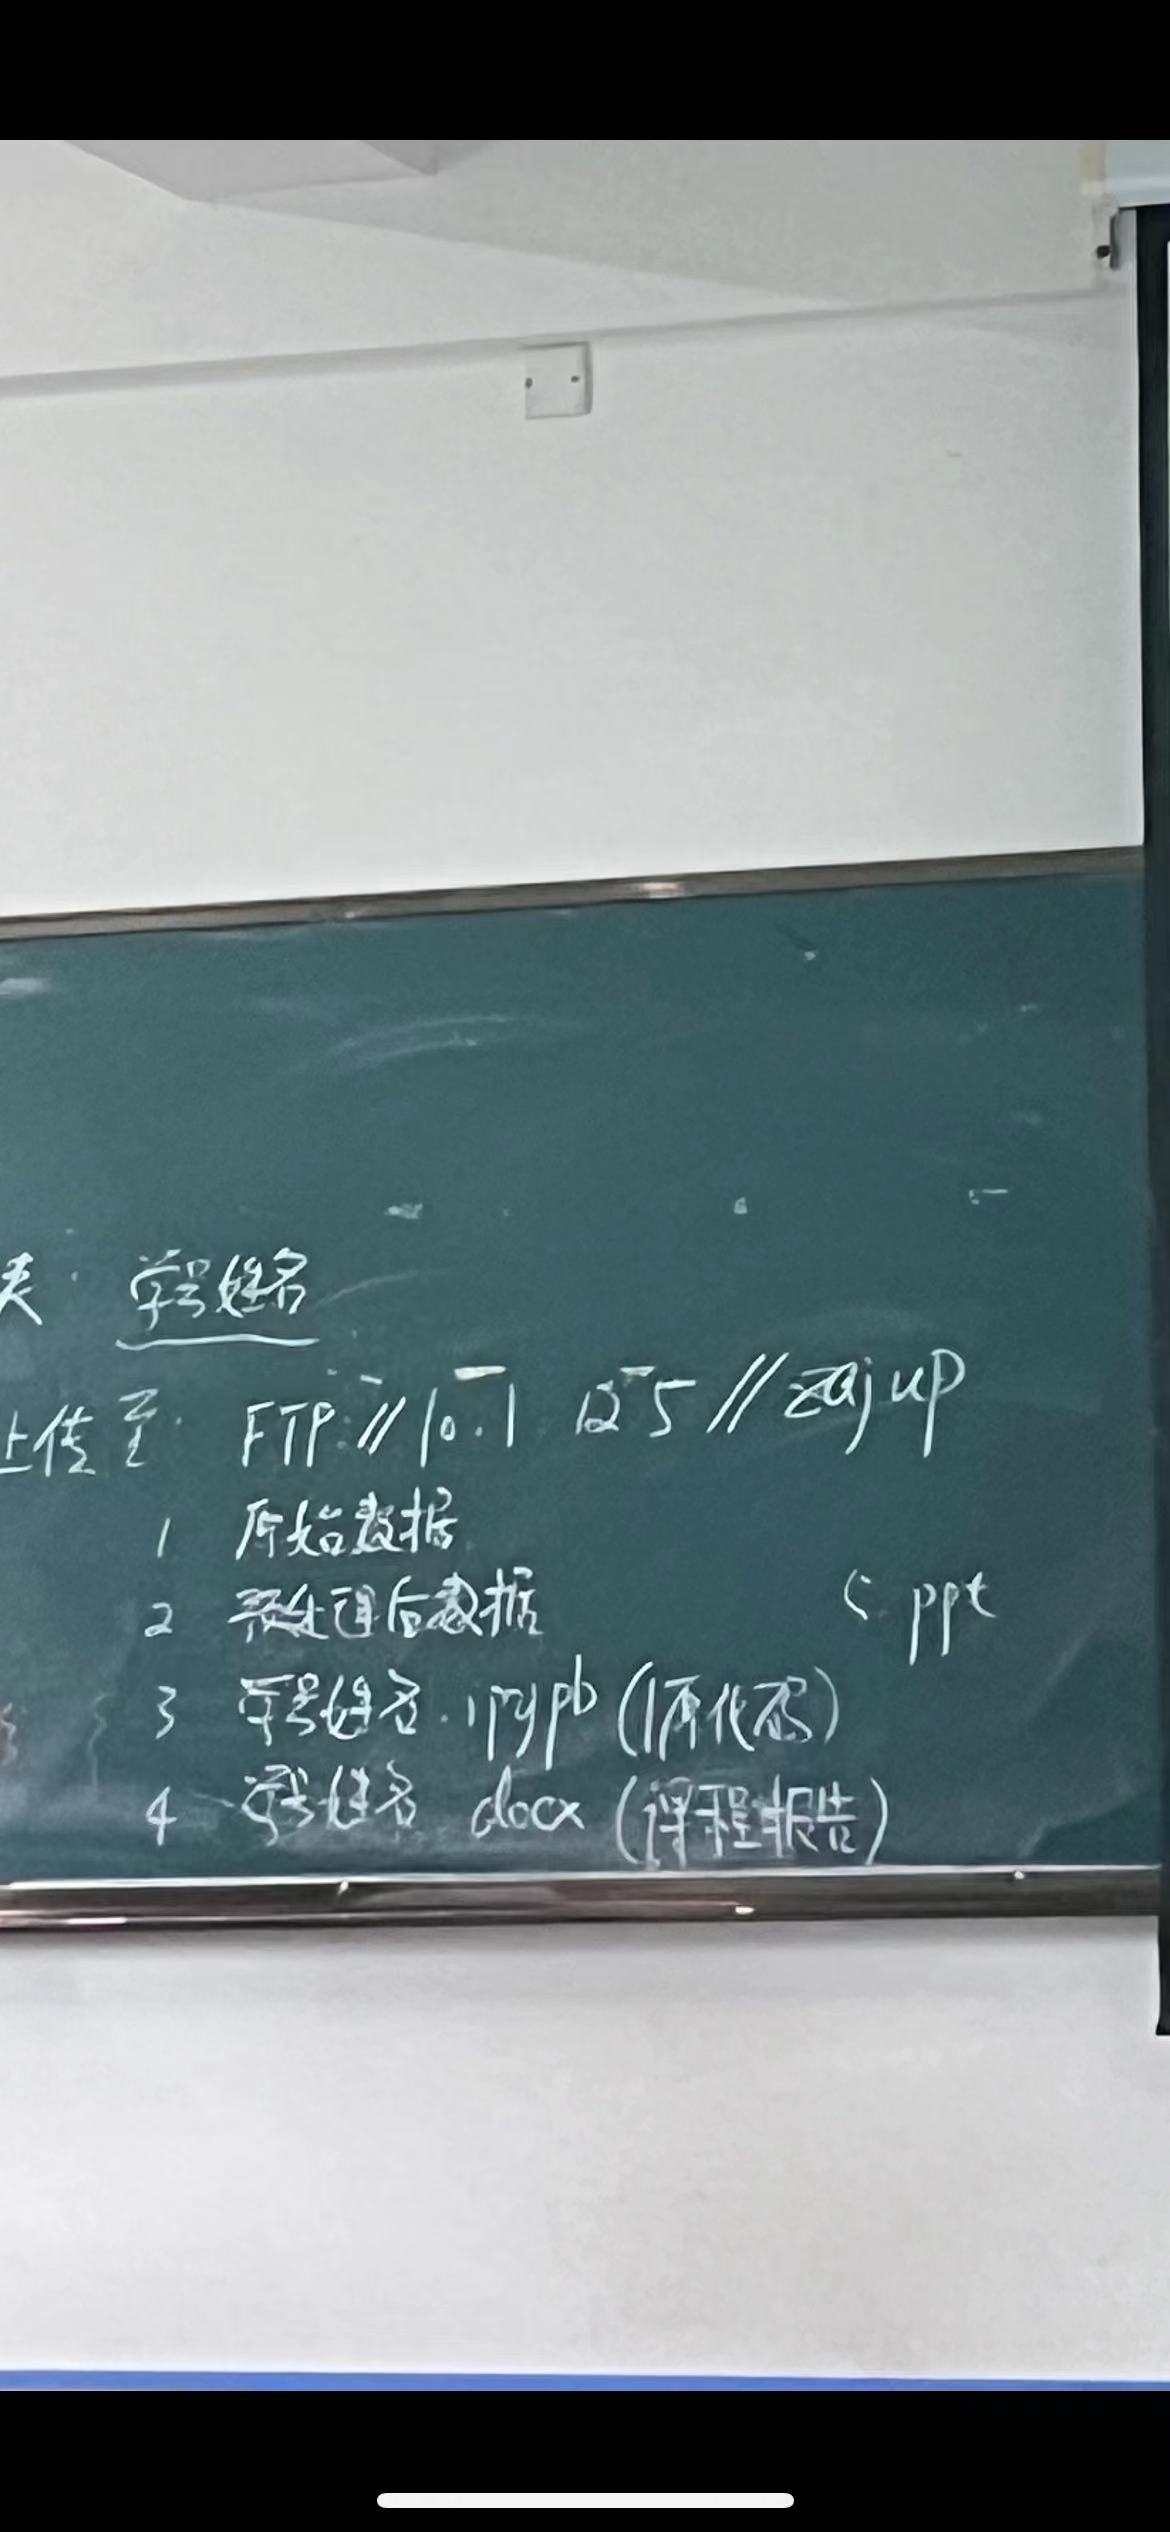 夹: 学号姓名
上传至: FTP://10.1 12 5//zajup
1 原始数据
2 预处理后数据
5 ppt
3 学号姓名.ipypb (源代码)
4 学号姓名 docx (课程报告)